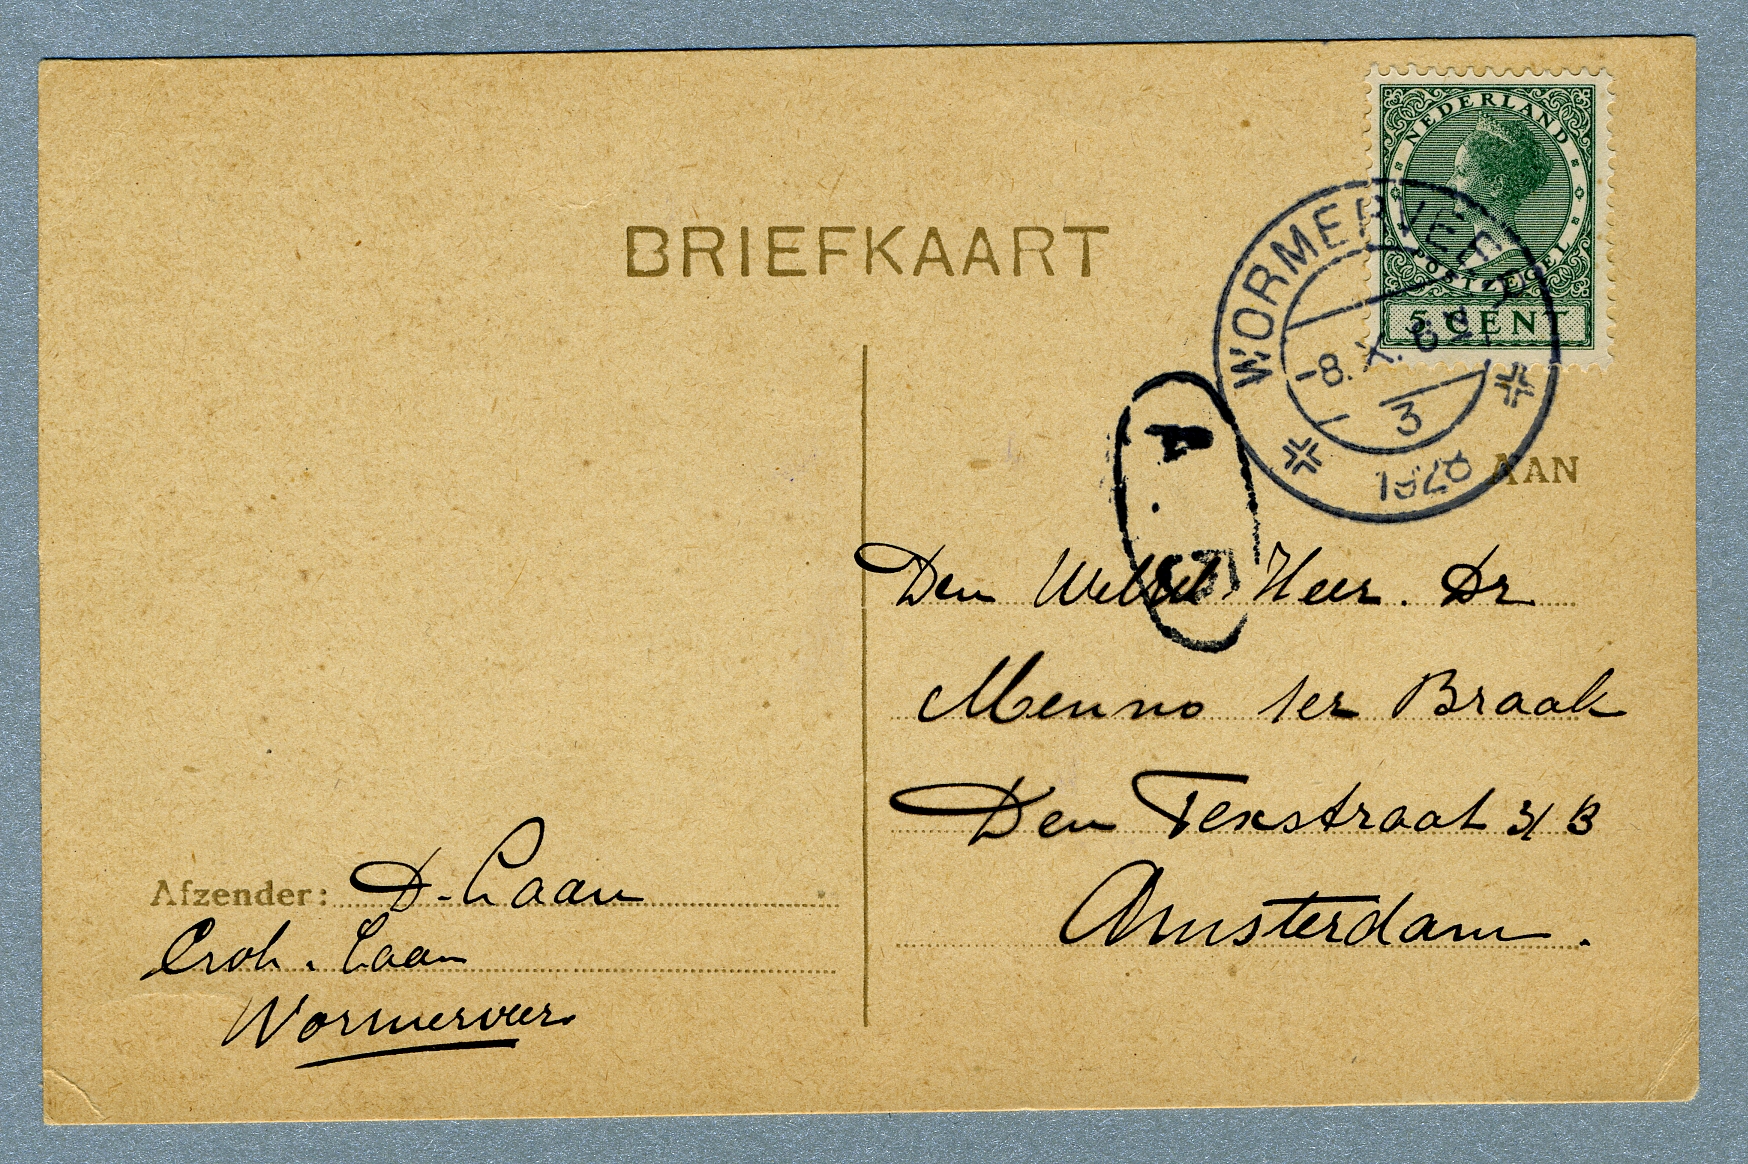 NEDERLAND
POSTZEGEL
5 CENT
BRIEFKAART
WORMERVEER
-8.X.
3
1928
AAN
A
Den Heer. Dr
Menno ter Braak
Den Texstraat 31 B
Amsterdam.
Afzender: D. Laan
Laan
Wormerveer